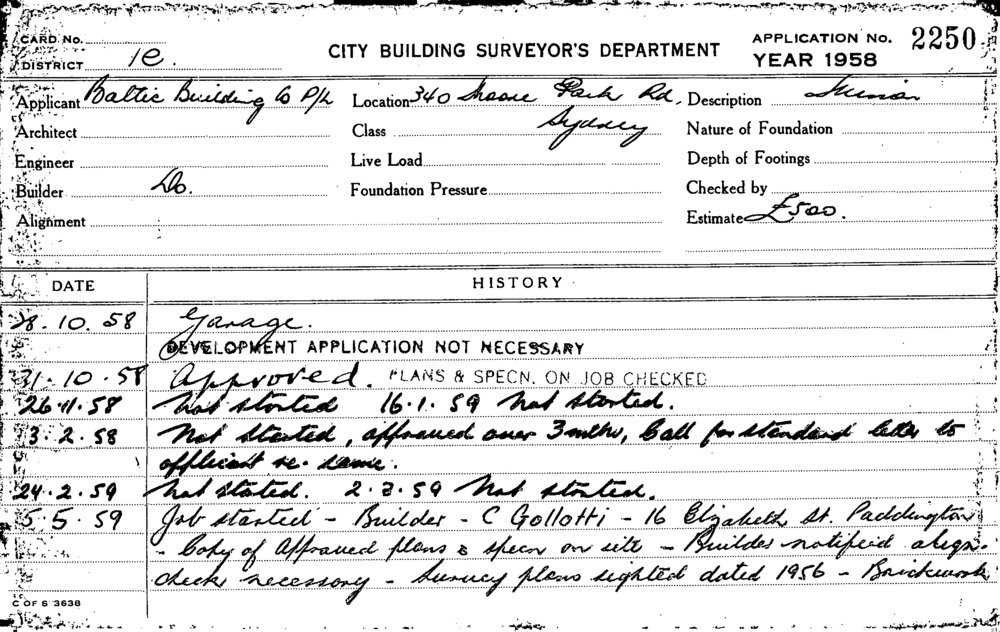 CARD No.
DISTRICT 1e.
CITY BUILDING SURVEYOR'S DEPARTMENT
APPLICATION No. 2250
YEAR 1958
Applicant Baltic Building Co P/L Location 340 Moore Park Rd, Description Minor
Architect Class Sydney Nature of Foundation
Engineer Live Load Depth of Footings
Builder Do. Foundation Pressure Checked by
Alignment Estimate £500.
DATE HISTORY
28.10.58 Garage.
DEVELOPMENT APPLICATION NOT NECESSARY
31.10.58 Approved. PLANS & SPECN. ON JOB CHECKED
26.11.58 Not started 16.1.59 Not started.
3.2.58 Not started, approved over 3 mths, Call for standard letter to
applicant re. same.
24.2.59 Not started. 2.3.59 Not started.
5.5.59 Job started - Builder - C Gollotti - 16 Elizabeth St. Paddington
- Copy of Approved plans & specn on site - Builder notified align.
check necessary - Survey plans sighted dated 1956 - Brickwork
C OF S 3638